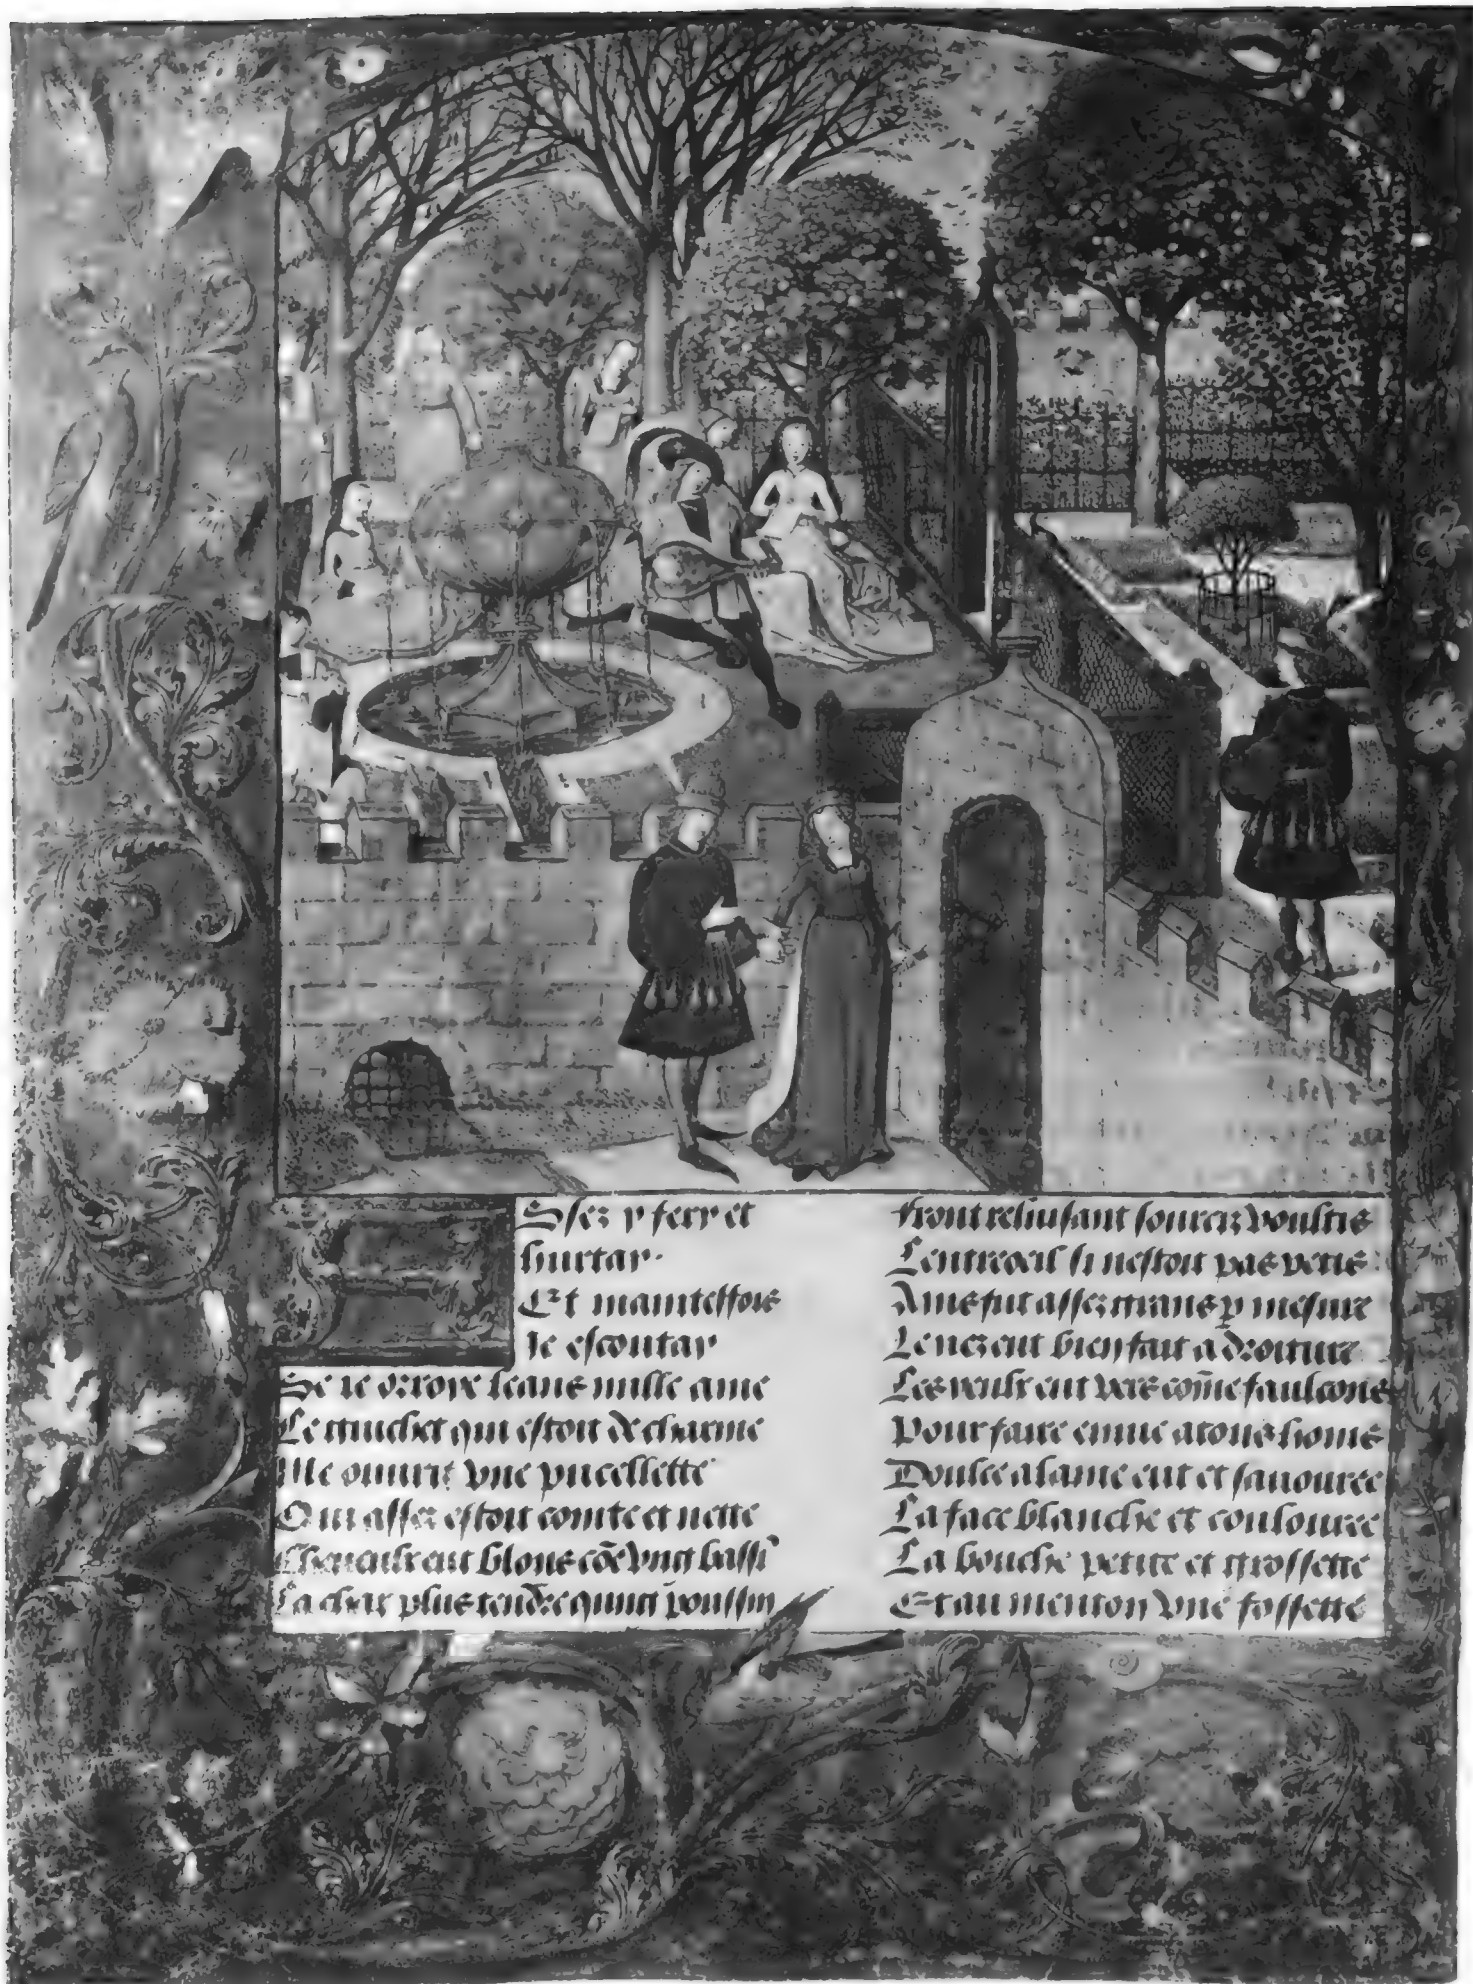 Ssez y fery et
hurtay.
Et mainteffois
Ie escoutay
Se ie orroye leans nulle ame
Le guichet qui estoit de charme
Me ouurit vne pucellette
Qui assez estoit cointe et nette
Cheueulx eut blons cõe vng bassĩ
La char plus tendre qung poussin
Front reluisant sourcilz voultis
Lentreoeil si nestoit pas petis
Ains fut assez grans p mesure
Le nez eut bien fait a droiture
Les yeulx eut vers cõme faulcons
Pour faire enuie a tous homs
Doulce alaine eut et sauouree
La face blanche et coulouree
La bouche petite et grossette
Et au menton vne fossette